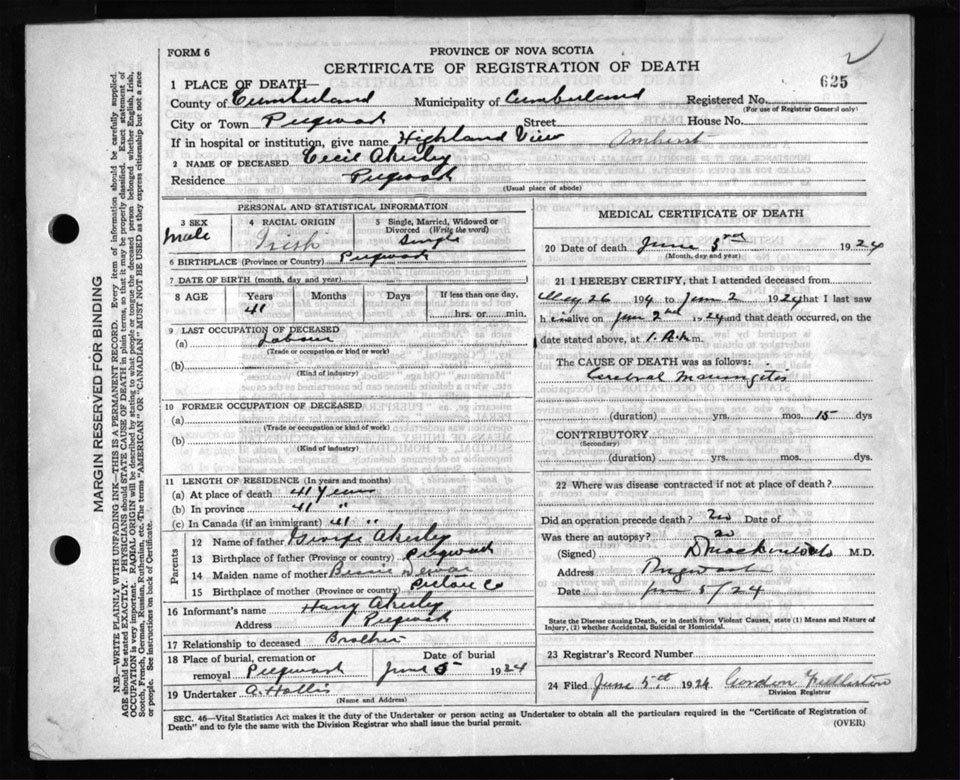 FORM 6
PROVINCE OF NOVA SCOTIA
2
CERTIFICATE OF REGISTRATION OF DEATH
625
1 PLACE OF DEATH—
County of Cumberland Municipality of Cumberland Registered No.
(For use of Registrar General only)
City or Town Pugwash Street House No.
If in hospital or institution, give name Highland View Amherst
2 NAME OF DECEASED Cecil Akerley
Residence Pugwash
(Usual place of abode)
PERSONAL AND STATISTICAL INFORMATION
3 SEX Male
4 RACIAL ORIGIN Irish
5 Single, Married, Widowed or Divorced (Write the word) Single
6 BIRTHPLACE (Province or Country) Pugwash
7 DATE OF BIRTH (month, day and year)
8 AGE Years Months Days If less than one day,
41 hrs. or min.
9 LAST OCCUPATION OF DECEASED
(a) Labour
(Trade or occupation or kind or work)
(b)
(Kind of industry)
10 FORMER OCCUPATION OF DECEASED
(a)
(Trade or occupation or kind of work)
(b)
(Kind of industry)
11 LENGTH OF RESIDENCE (In years and months)
(a) At place of death 41 Years
(b) In province 41 "
(c) In Canada (if an immigrant) 41 "
Parents
12 Name of father George Akerley
13 Birthplace of father (Province or country) Pugwash
14 Maiden name of mother Bessie Dewar
15 Birthplace of mother (Province or country) Pictou Co
16 Informant's name Harry Akerley
Address Pugwash
17 Relationship to deceased Brother
18 Place of burial, cremation or removal Pugwash
Date of burial June 5 1924
19 Undertaker A. Hollis
(Name and Address)
MEDICAL CERTIFICATE OF DEATH
20 Date of death June 3rd 1924
(Month, day and year)
21 I HEREBY CERTIFY, that I attended deceased from
May 26 192 to June 2 1924 that I last saw
h im alive on June 2nd 1924 and that death occurred, on
the date stated above, at 1. A. m.
The CAUSE OF DEATH was as follows:
Cerebral Maningitis
(duration) yrs. mos. 15 dys
CONTRIBUTORY
(Secondary)
(duration) yrs. mos. dys.
22 Where was disease contracted if not at place of death?
Did an operation precede death? no Date of
Was there an autopsy? no
(Signed) M.D.
Address Pugwash
Date June 5/24
State the Disease causing Death, or in death from Violent Causes, state (1) Means and Nature of
Injury, (2) whether Accidental, Suicidal or Homicidal.
23 Registrar's Record Number
24 Filed June 5th 1924 Gordon
Division Registrar
SEC. 46—Vital Statistics Act makes it the duty of the Undertaker or person acting as Undertaker to obtain all the particulars required in the "Certificate of Registration of
Death" and to fyle the same with the Division Registrar who shall issue the burial permit.
(OVER)
MARGIN RESERVED FOR BINDING
N.B.—WRITE PLAINLY WITH UNFADING INK—THIS IS A PERMANENT RECORD. Every item of information should be carefully supplied.
AGE should be stated EXACTLY. PHYSICIANS should STATE CAUSE OF DEATH in plain terms, so that it may be properly classified. Exact statement of
OCCUPATION is very important. RACIAL ORIGIN will be described by stating to what people or tongue the deceased person belonged whether English, Irish,
Scotch, French, German, Russian, Ruthenian, etc. The terms "AMERICAN" OR "CANADIAN" MUST NOT BE USED as they express citizenship but not a race
or people. See instructions on back of Certificate.